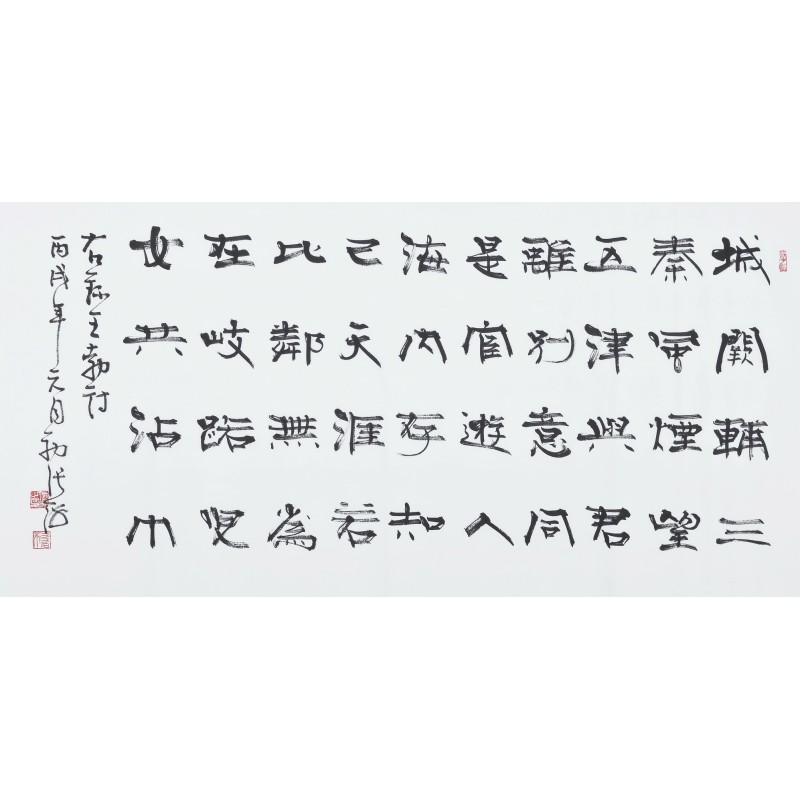 城闕輔三
秦風煙望
五津與君
離別意同
是宦遊人
海內存知
己天涯若
比鄰無為
在岐路兒
女共沾巾
右錄王勃詩
丙戌年元月